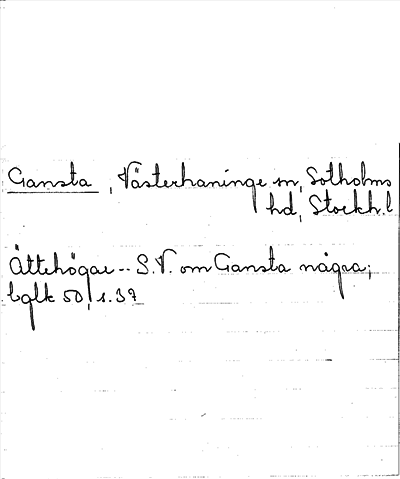 Gansta, Västerhaninge sn, Sotholms
hd, Stockh.l
Ättehögar -- S.V. om Gansta några;
bglk 50, s.37